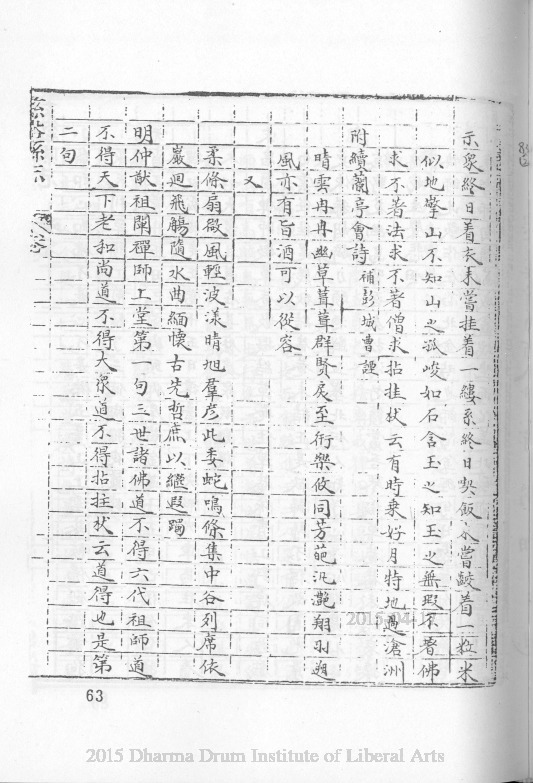 示眾終日着衣未嘗挂着一縷系終日喫飯未嘗齩着一粒米
似地擎山不知山之孤峻如石含玉之知玉之無瑕不着佛
求不着法求不着僧求拈拄杖云有時乘好月特地過滄洲
附續蘭亭會詩 補彭城曹諲
晴雲冉冉幽草葺葺群賢戾至衎樂攸同芳葩汎灔翔羽翔
風亦有旨酒可以從容
又
柔條扇微風輕波漾晴旭羣彥此委蛇鳴條集中谷列席依
巖迴飛觴隨水曲緬懷古先哲庶以繼遐躅
明仲猷祖闡禪師上堂第一句三世諸佛道不得六代祖師道
不得天下老和尚道不得大眾道不得拈拄杖云道得也是第
二句
63
2015-04-1
2015 Dharma Drum Institute of Liberal Arts